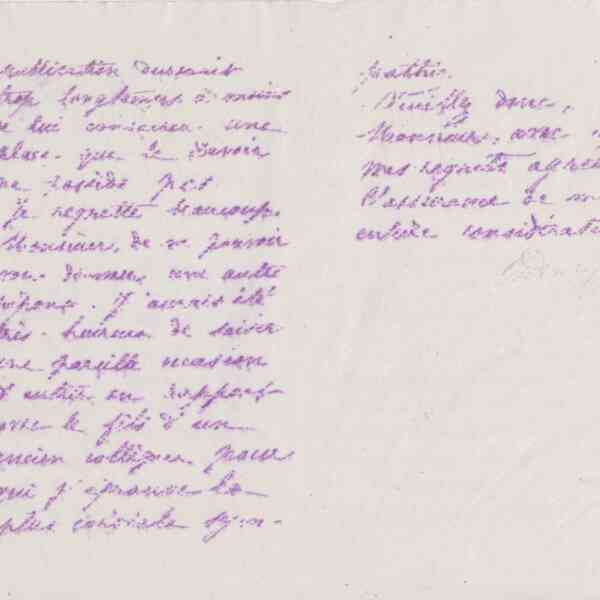 publication durerait
trop longtemps à moins
de lui consacrer une
place que le Savoir
ne possède pas
je regrette beaucoup,
Monsieur, de ne pouvoir
vous donner une autre
réponse. J'aurais été
très heureux de saisir
une pareille occasion
d'entrer en rapport
avec le fils d'un
ancien collègue pour
qui j'éprouve la
plus cordiale sym-
pathie.
Veuillez donc,
Monsieur, avec
mes regrets agréer
l'assurance de m
entière considérat